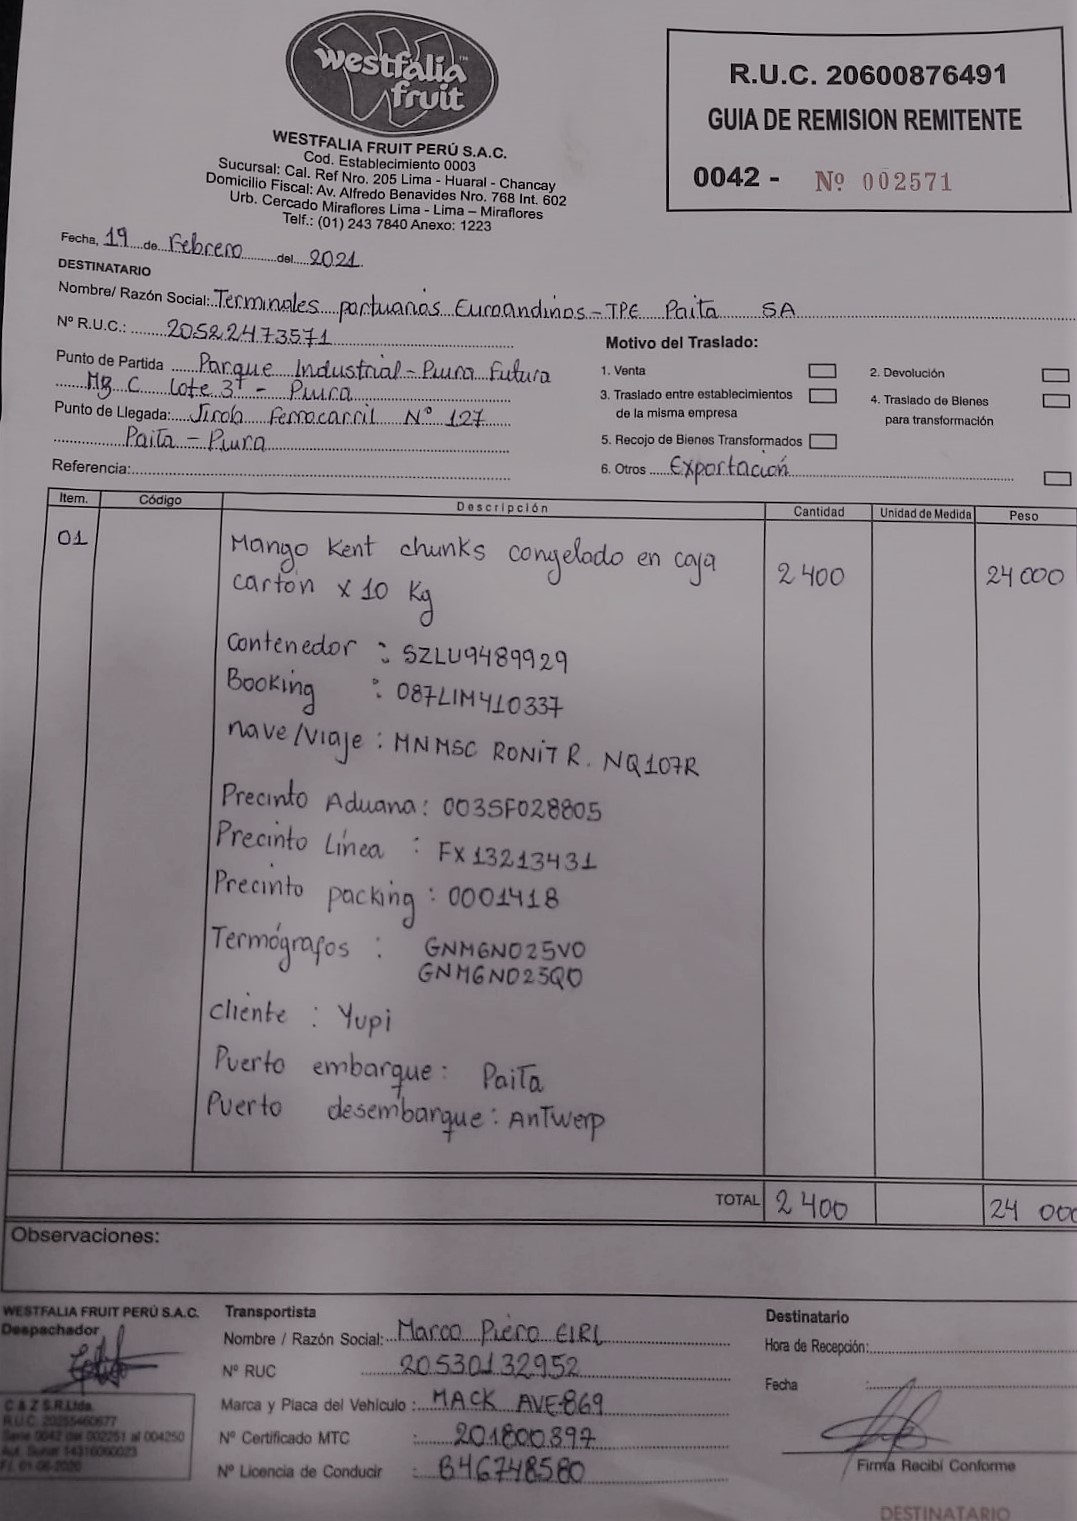 westfalia™
fruit
WESTFALIA FRUIT PERÚ S.A.C.
Cod. Establecimiento 0003
Sucursal: Cal. Ref Nro. 205 Lima - Huaral - Chancay
Domicilio Fiscal: Av. Alfredo Benavides Nro. 768 Int. 602
Urb. Cercado Miraflores Lima - Lima – Miraflores
Telf.: (01) 243 7840 Anexo: 1223
R.U.C. 20600876491
GUIA DE REMISION REMITENTE
0042 - Nº 002571
Fecha, 19 de Febrero del 2021
DESTINATARIO
Nombre/ Razón Social: Terminales portuarios Euroandinos - TPE Paita SA
Nº R.U.C.: 20522473571
Punto de Partida Parque Industrial - Piura Futura
Mz C lote 3 - Piura
Punto de Llegada: Jirón Ferrocarril Nº 127
Paita - Piura
Referencia:
Motivo del Traslado:
1. Venta
2. Devolución
3. Traslado entre establecimientos
de la misma empresa
4. Traslado de Bienes
para transformación
5. Recojo de Bienes Transformados
6. Otros Exportación
Item. Código Descripción Cantidad Unidad de Medida Peso
01 Mango Kent chunks congelado en caja
cartón x 10 Kg 2 400 24 000
Contenedor : SZLU9489929
Booking : 087LIM410337
nave/viaje : MN MSC RONIT R. NQ107R
Precinto Aduana: 0035F028805
Precinto Línea : FX13213431
Precinto packing : 0001418
Termógrafos : GNM6N025V0
GNM6N025Q0
cliente : Yupi
Puerto embarque: Paita
Puerto desembarque: Antwerp
TOTAL 2 400 24 000
Observaciones:
WESTFALIA FRUIT PERÚ S.A.C.
Despachador
C & Z S.R.Ltda.
R.U.C. 20255460677
Serie 0042 del 002251 al 004250
Aut. Sunat 14316060023
F.I. 01-06-2020
Transportista
Nombre / Razón Social: Marco Piero EIRL
Nº RUC 20530132952
Marca y Placa del Vehículo : MACK AVE-869
Nº Certificado MTC : 201800397
Nº Licencia de Conducir : B46748580
Destinatario
Hora de Recepción:
Fecha :
Firma Recibí Conforme
DESTINATARIO